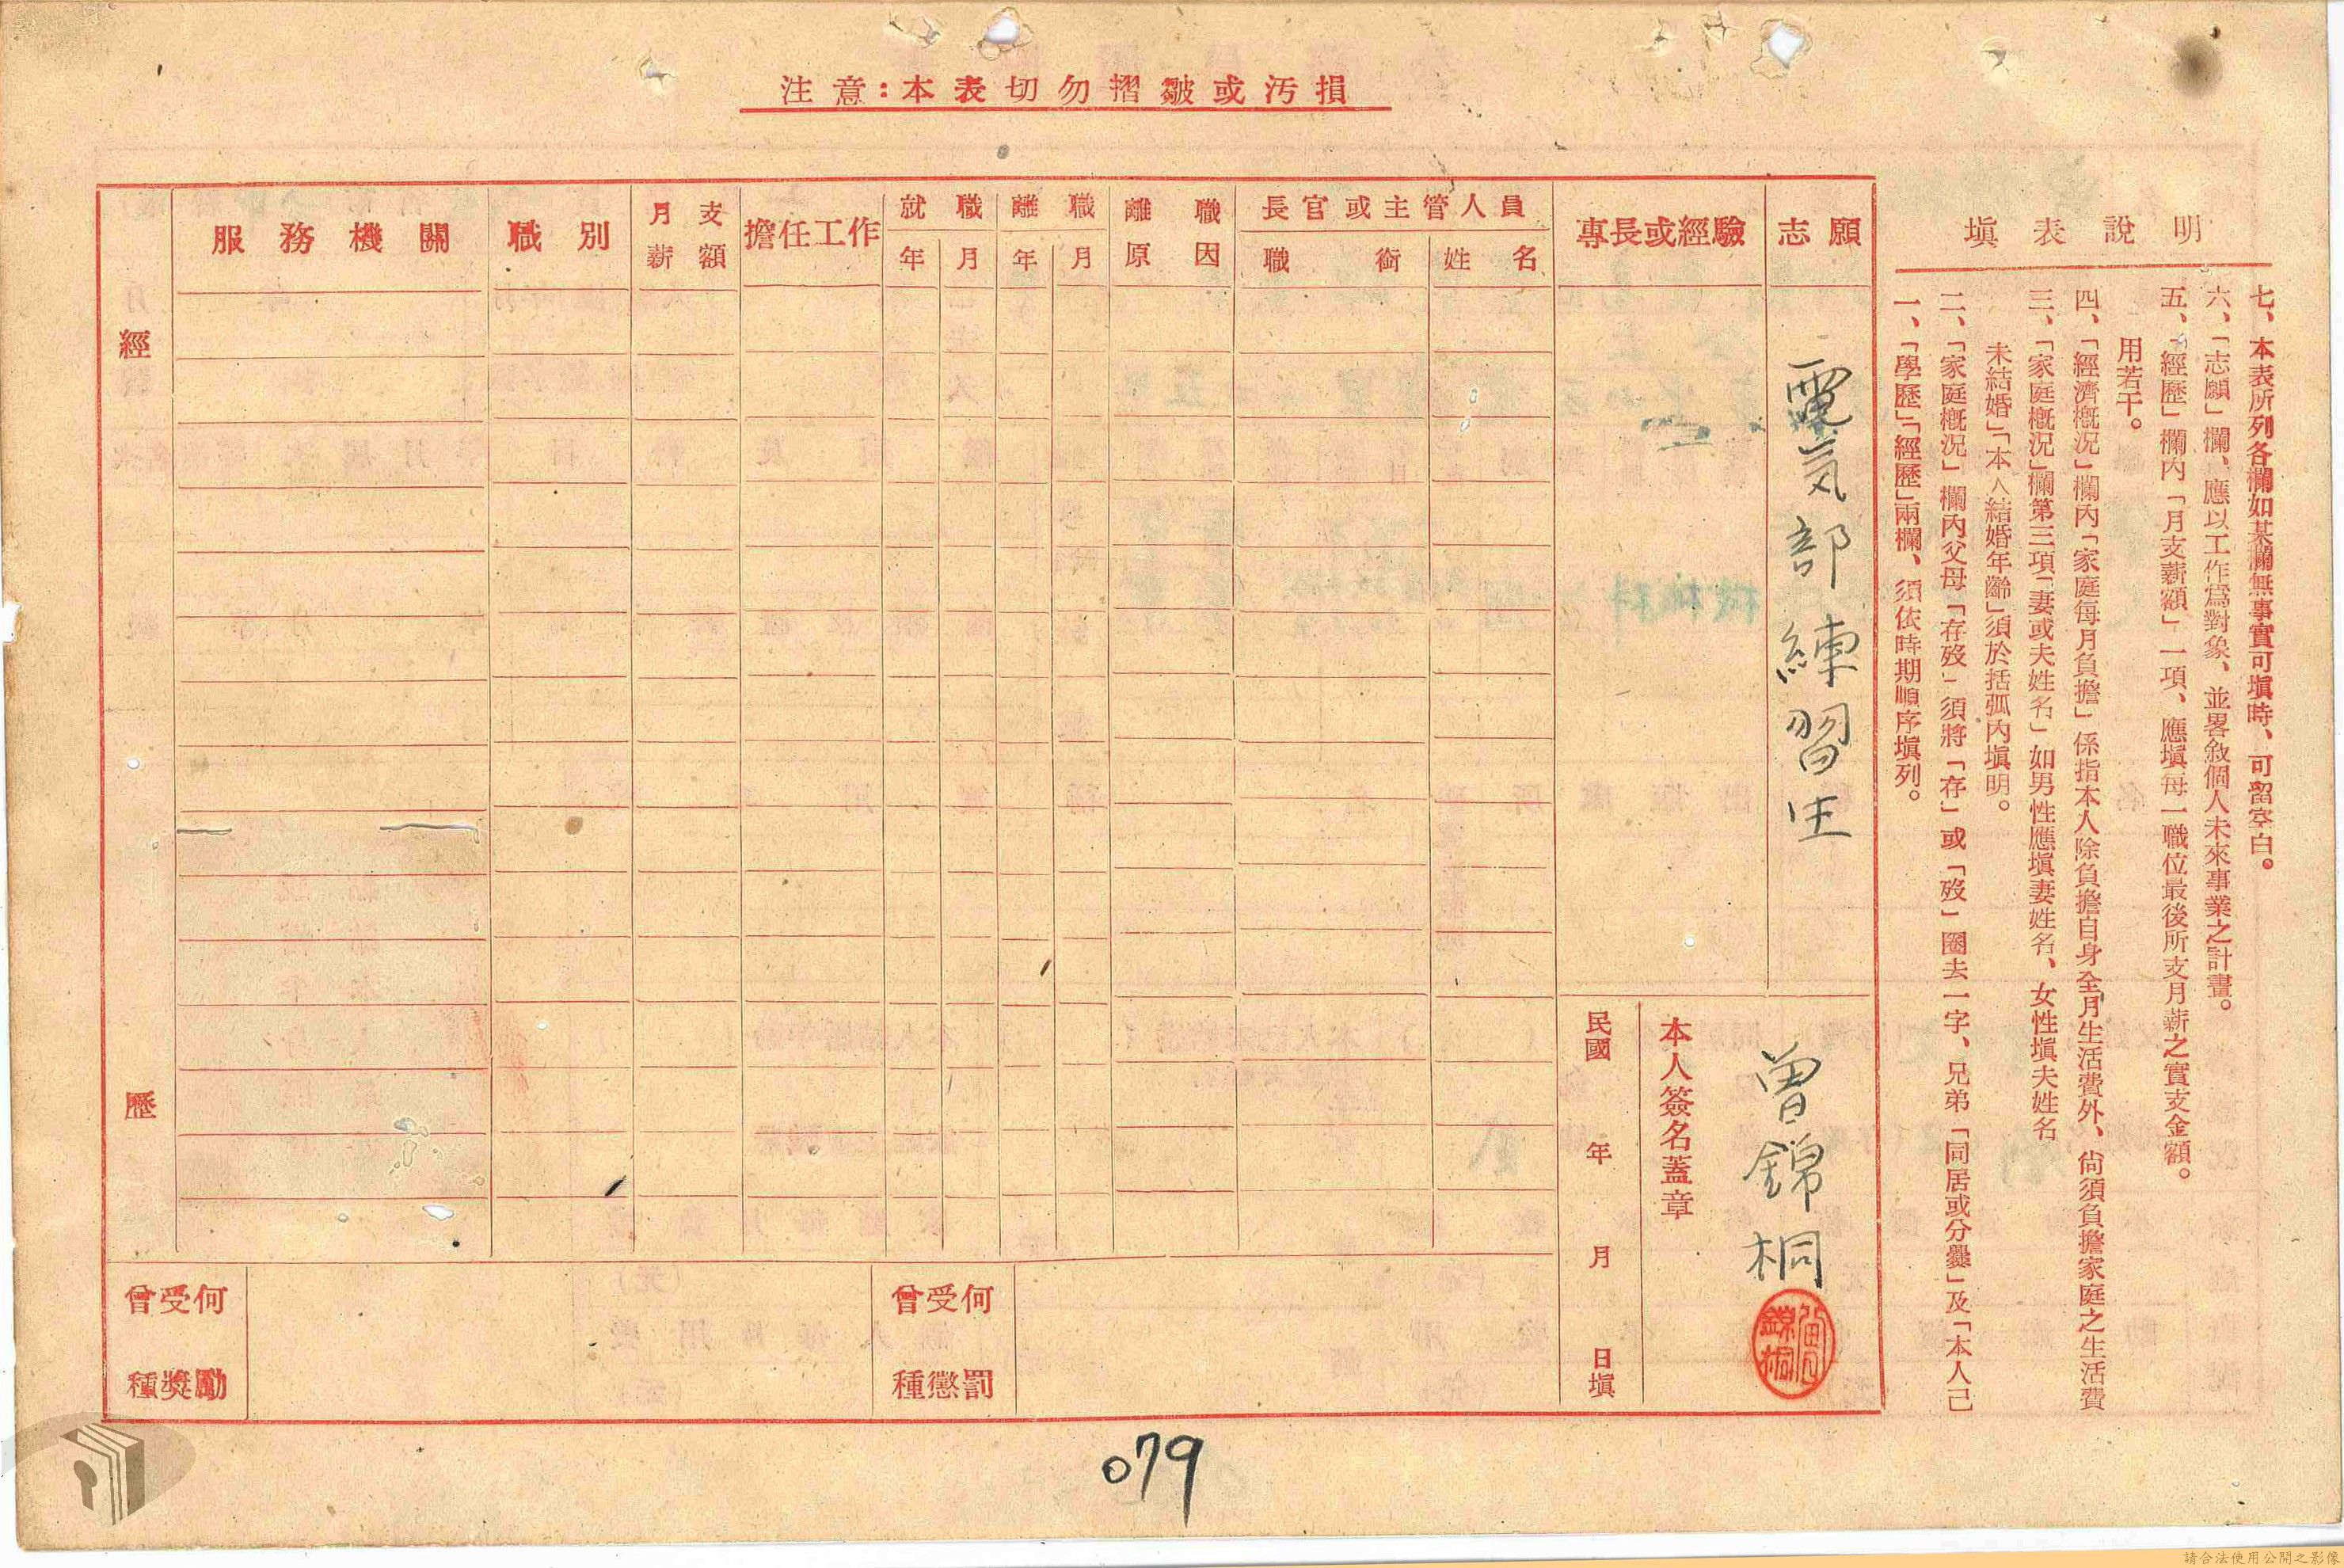 注意：本表切勿摺皺或污損
填表說明
一、「學歷」「經歷」兩欄、須依時期順序填列。
二、「家庭概況」欄內父母「存歿」須將「存」或「歿」圈去一字、兄弟「同居或分爨」及「本人已
未結婚」「本人結婚年齡」須於括弧內填明。
三、「家庭概況」欄第三項「妻或夫姓名」如男性應填妻姓名、女性填夫姓名
四、「經濟概況」欄內「家庭每月負擔」係指本人除負擔自身全月生活費外、尙須負擔家庭之生活費
用若干。
五、「經歷」欄內「月支薪額」一項、應填每一職位最後所支月薪之實支金額。
六、「志願」欄、應以工作爲對象、並畧敘個人未來事業之計畫。
七、本表所列各欄如某欄無事實可填時、可留空白。
經歷
服務機關
職別
月支薪額
擔任工作
就職
年 月
離職
年 月
離職原因
長官或主管人員
職銜 姓名
專長或經驗
志願
電気部練習生
本人簽名蓋章
曾錦桐
民國 年 月 日填
曾受何種獎勵
曾受何種懲罰
079
請合法使用公開之影像